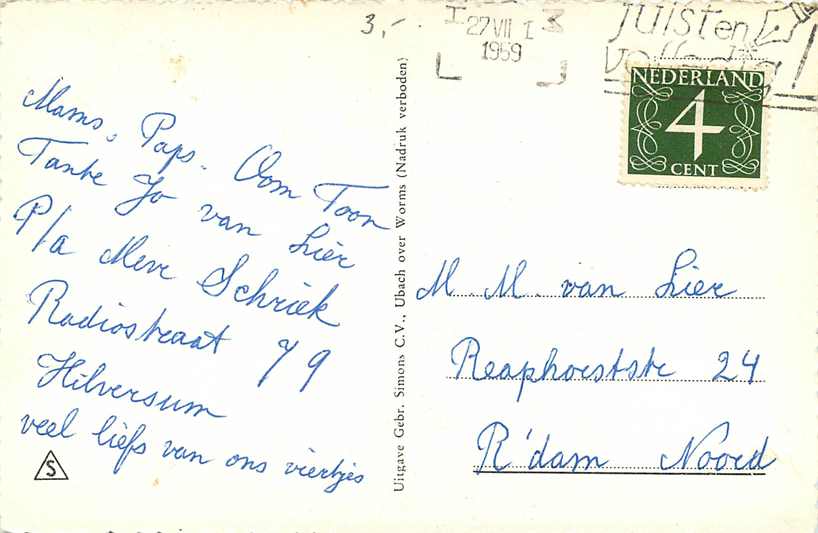 3,-
27 VII 1
1959
JUISTEN
NEDERLAND
4
CENT
Mams, Paps. Oom Toon
Tante Jo van Lier
P/a Mevr Schriek
Radiostraat 79
Hilversum
veel liefs van ons viertjes
S
Uitgave Gebr. Simons C.V., Ubach over Worms (Nadruk verboden)
M. M. van Lier
Reaphorststr 24
R'dam Noord